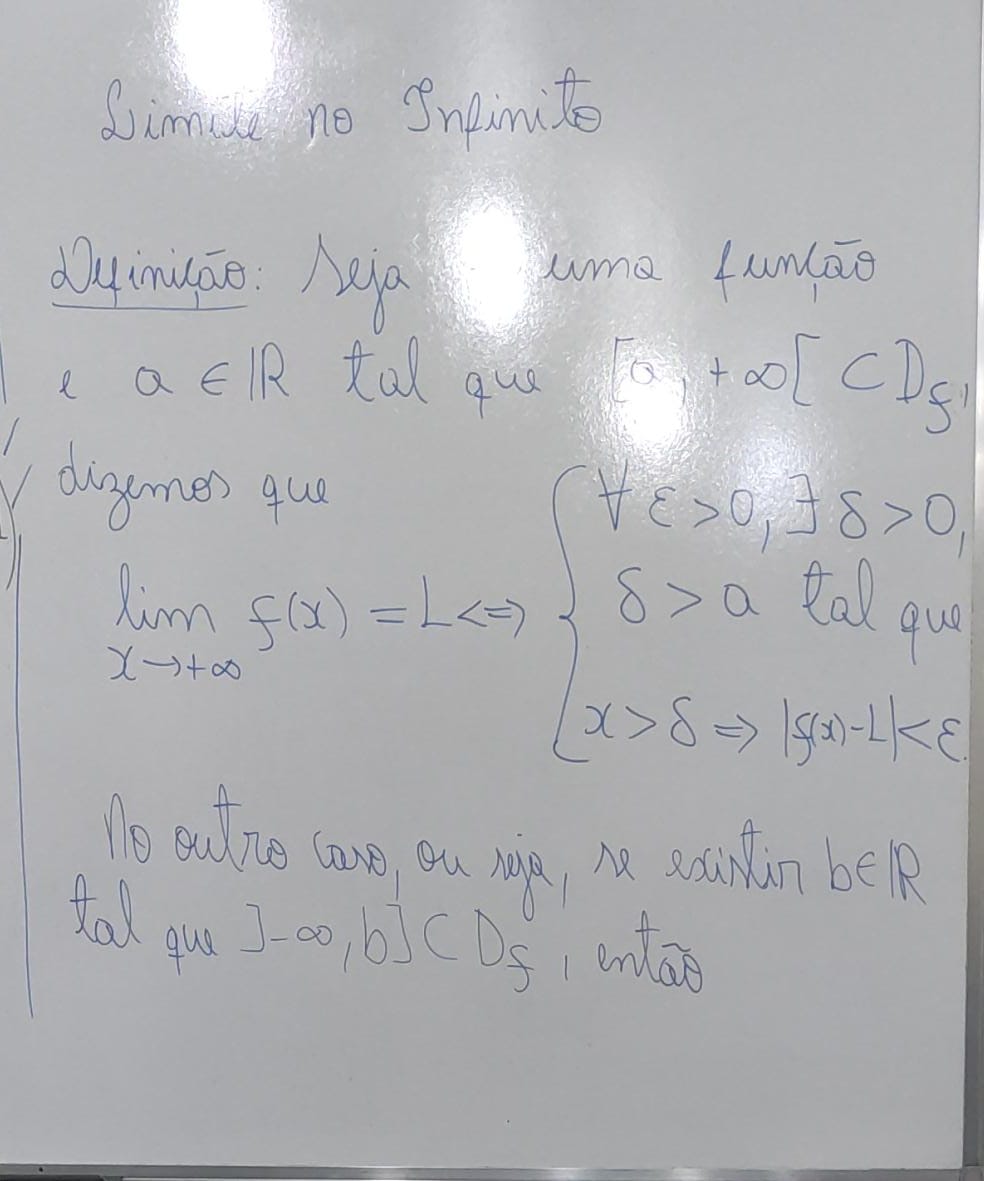 Limite no Infinito
Definição: Seja uma função
e a ∈ ℝ tal que [a, +∞[ ⊂ D_f,
dizemos que
lim f(x) = L <=> { ∀ ε > 0, ∃ δ > 0,
x → +∞
δ > a tal que
x > δ => |f(x) - L| < ε.
No outro caso, ou seja, se existir b ∈ ℝ
tal que ]-∞, b] ⊂ D_f, então